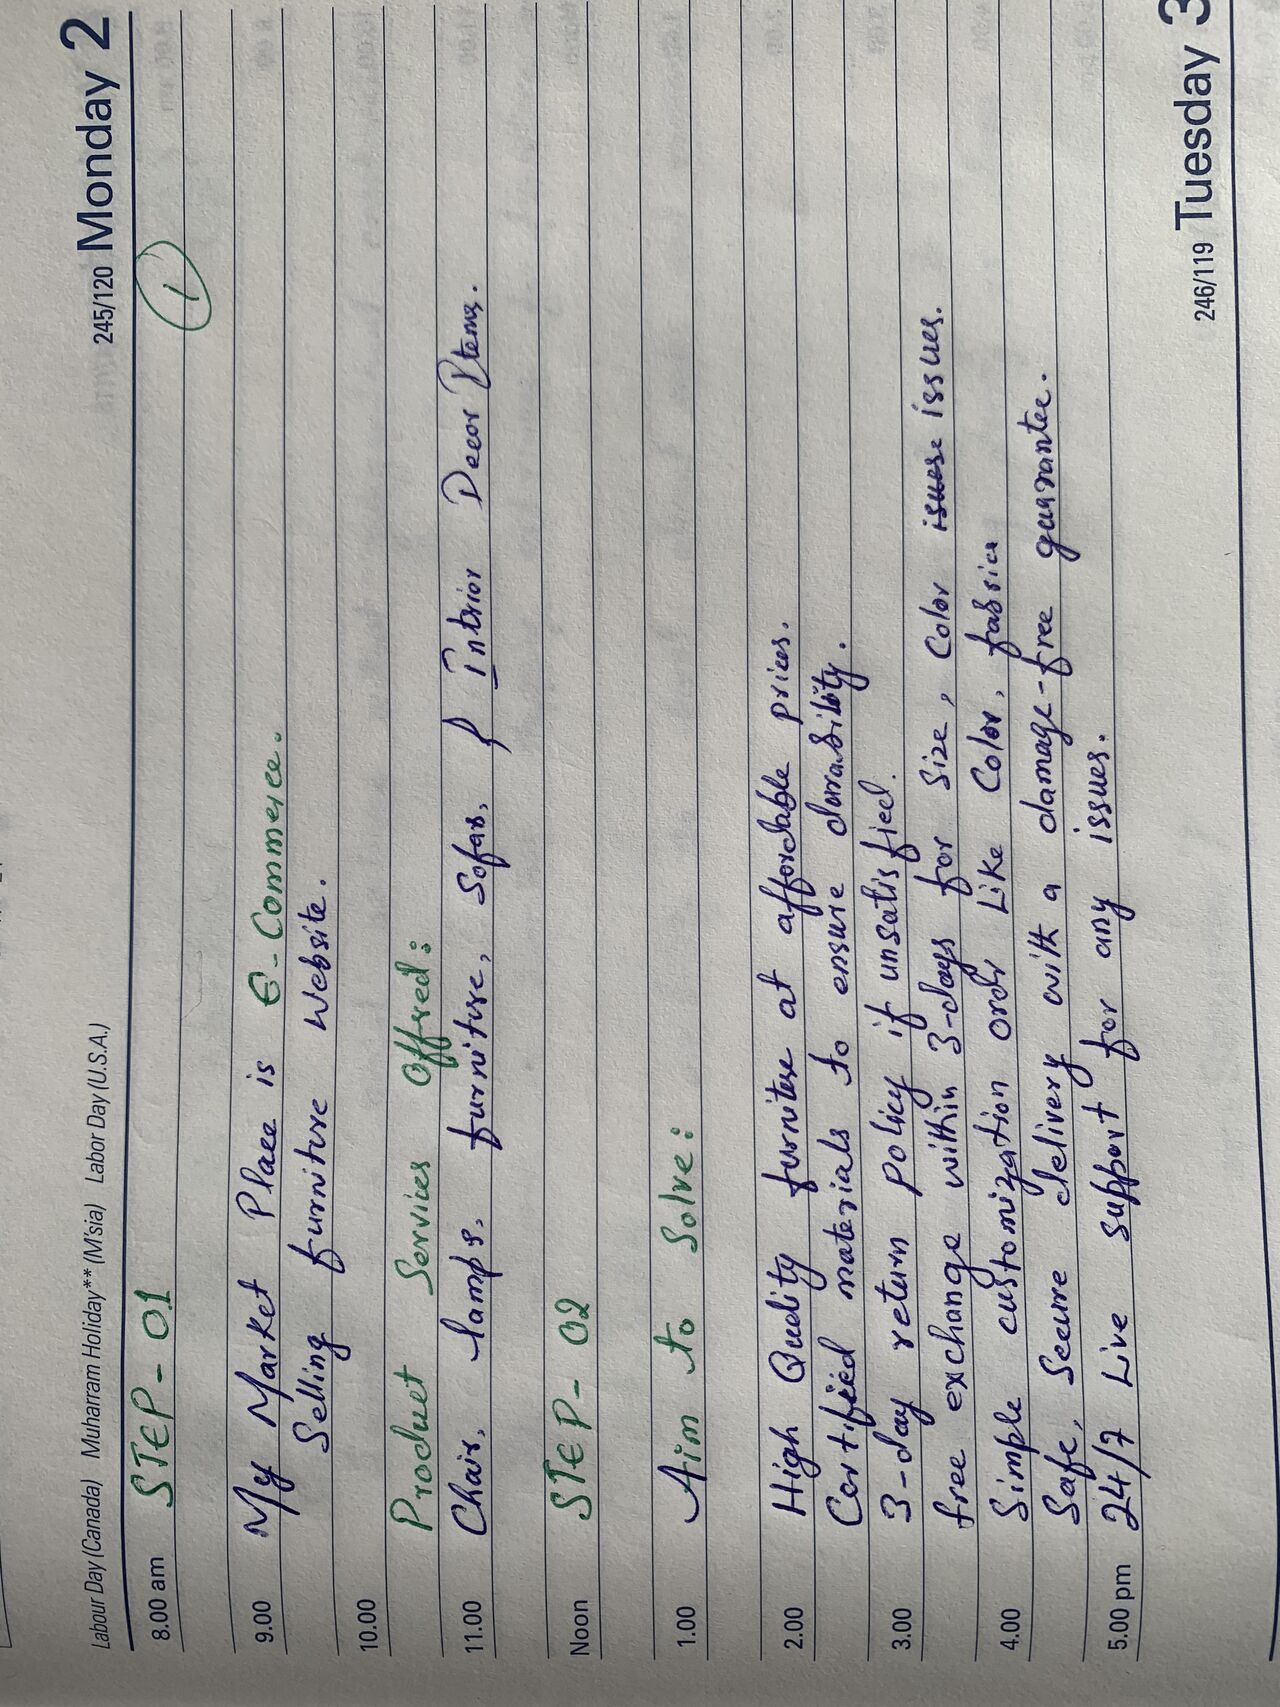 Labour Day (Canada) Muharram Holiday** (M'sia) Labor Day (U.S.A.) 245/120 Monday 2
8.00 am STEP - 01 1
9.00 My Market Place is E-Commerce.
Selling furniture Website.
10.00
Product Services Offred:
11.00 Chair, lamps, furniture, Sofas, & Intrior Decor Items.
Noon STEP - 02
1.00 Aim to Solve:
2.00 High Quality furniture at affordable prices.
Certified materials to ensure durability.
3.00 3-day return policy if unsatisfied.
free exchange within 3-days for Size, Color isuese issues.
4.00 Simple customization order Like Color, fabric
Safe, Secure delivery with a damage-free guarantee.
5.00 pm 24/7 Live support for any issues.
246/119 Tuesday 3